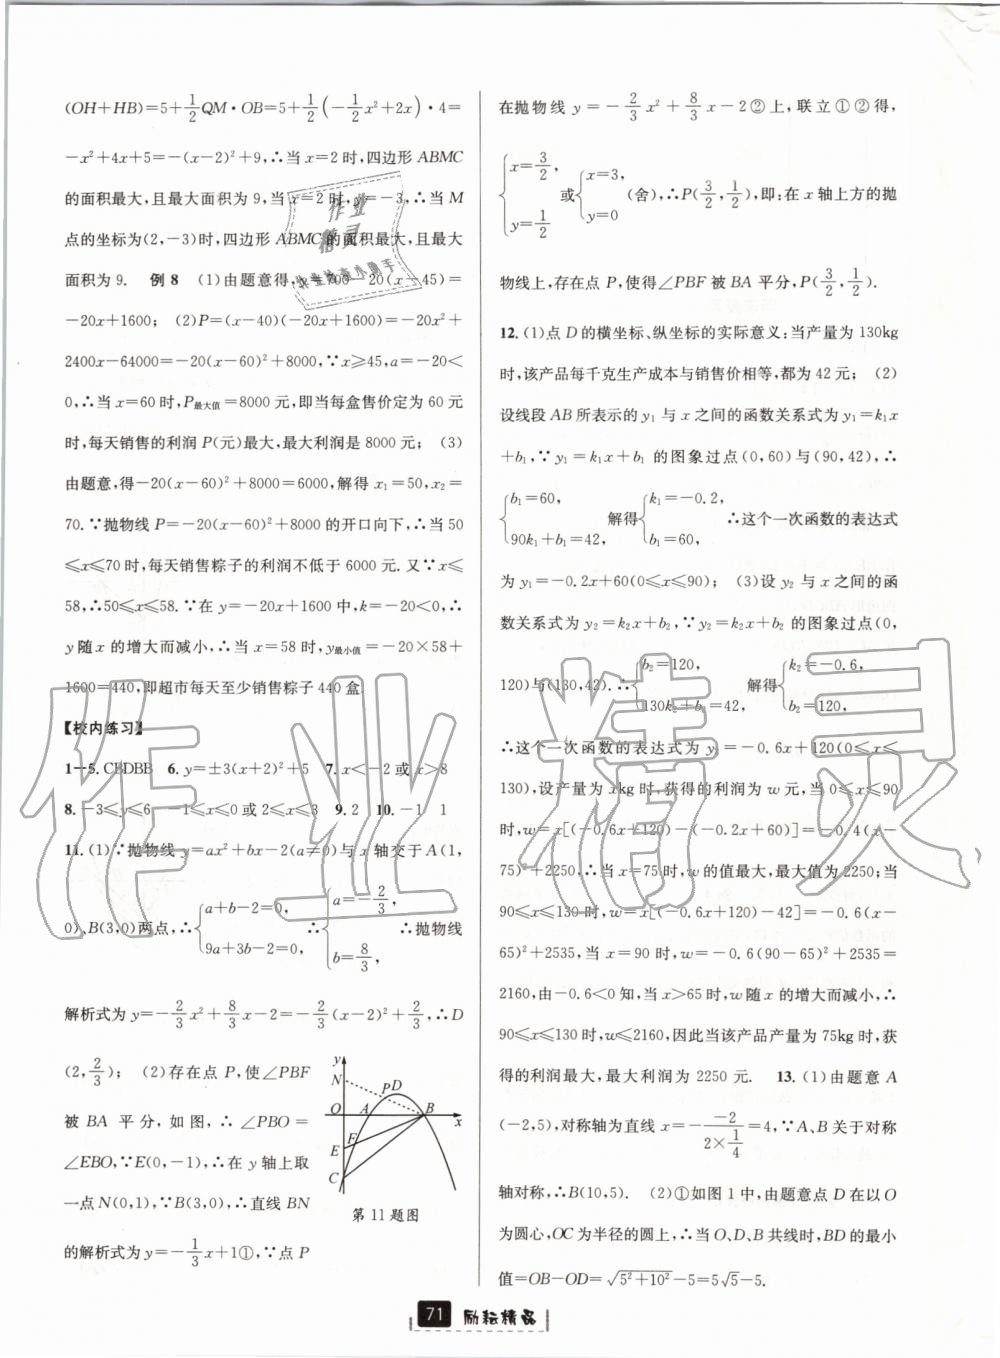 (OH+HB)=5+1/2QM·OB=5+1/2(-1/2x²+2x)·4=
-x²+4x+5=-(x-2)²+9,∴当x=2时,四边形ABMC
的面积最大,且最大面积为9,当x=2时,y=-3,∴当M
点的坐标为(2,-3)时,四边形ABMC的面积最大,且最大
面积为9. 例8 (1)由题意得,y=700-20(x-45)=
-20x+1600; (2)P=(x-40)(-20x+1600)=-20x²+
2400x-64000=-20(x-60)²+8000,∵x≥45,a=-20<
0,∴当x=60时,P最大值=8000元,即当每盒售价定为60元
时,每天销售的利润P(元)最大,最大利润是8000元; (3)
由题意,得-20(x-60)²+8000=6000,解得x₁=50,x₂=
70.∵抛物线P=-20(x-60)²+8000的开口向下,∴当50
≤x≤70时,每天销售粽子的利润不低于6000元.又∵x≤
58,∴50≤x≤58.∵在y=-20x+1600中,k=-20<0,∴
y随x的增大而减小,∴当x=58时,y最小值=-20×58+
1600=440,即超市每天至少销售粽子440盒
【校内练习】
1-5. CBDBB 6. y=±3(x+2)²+5 7. x<-2或x>8
8. -3≤y≤6 -1≤x≤0或2≤x≤3 9. 2 10. -1 1
11. (1)∵抛物线y=ax²+bx-2(a≠0)与x轴交于A(1,
0)、B(3,0)两点,∴{a+b-2=0, 9a+3b-2=0, ∴{a=-2/3, b=8/3, ∴抛物线
解析式为y=-2/3x²+8/3x-2=-2/3(x-2)²+2/3,∴D
(2,2/3); (2)存在点P,使∠PBF
被BA平分,如图,∴∠PBO=
∠EBO,∵E(0,-1),∴在y轴上取
一点N(0,1),∵B(3,0),∴直线BN
的解析式为y=-1/3x+1①,∵点P
y
N
PD
O
A
B
x
F
E
C
第11题图
在抛物线y=-2/3x²+8/3x-2②上,联立①②得,
{x=3/2, y=1/2 或{x=3, y=0 (舍),∴P(3/2,1/2),即:在x轴上方的抛
物线上,存在点P,使得∠PBF被BA平分,P(3/2,1/2).
12. (1)点D的横坐标、纵坐标的实际意义:当产量为130kg
时,该产品每千克生产成本与销售价相等,都为42元; (2)
设线段AB所表示的y₁与x之间的函数关系式为y₁=k₁x
+b₁,∵y₁=k₁x+b₁的图象过点(0,60)与(90,42),∴
{b₁=60, 90k₁+b₁=42, 解得{k₁=-0.2, b₁=60, ∴这个一次函数的表达式
为y₁=-0.2x+60(0≤x≤90); (3)设y₂与x之间的函
数关系式为y₂=k₂x+b₂,∵y₂=k₂x+b₂的图象过点(0,
120)与(130,42).∴{b₂=120, 130k₂+b₂=42, 解得{k₂=-0.6, b₂=120,
∴这个一次函数的表达式为y₂=-0.6x+120(0≤x≤
130),设产量为xkg时,获得的利润为w元,当0≤x≤90
时,w=x[(-0.6x+120)-(-0.2x+60)]=-0.4(x-
75)²+2250,∴当x=75时,w的值最大,最大值为2250;当
90≤x≤130时,w=x[(-0.6x+120)-42]=-0.6(x-
65)²+2535,当x=90时,w=-0.6(90-65)²+2535=
2160,由-0.6<0知,当x>65时,w随x的增大而减小,∴
90≤x≤130时,w≤2160,因此当该产品产量为75kg时,获
得的利润最大,最大利润为2250元. 13. (1)由题意A
(-2,5),对称轴为直线x=--2/(2×1/4)=4,∵A、B关于对称
轴对称,∴B(10,5). (2)①如图1中,由题意点D在以O
为圆心,OC为半径的圆上,∴当O、D、B共线时,BD的最小
值=OB-OD=√(5²+10²)-5=5√5-5.
71 励耘精品
作业精灵
作业
精灵